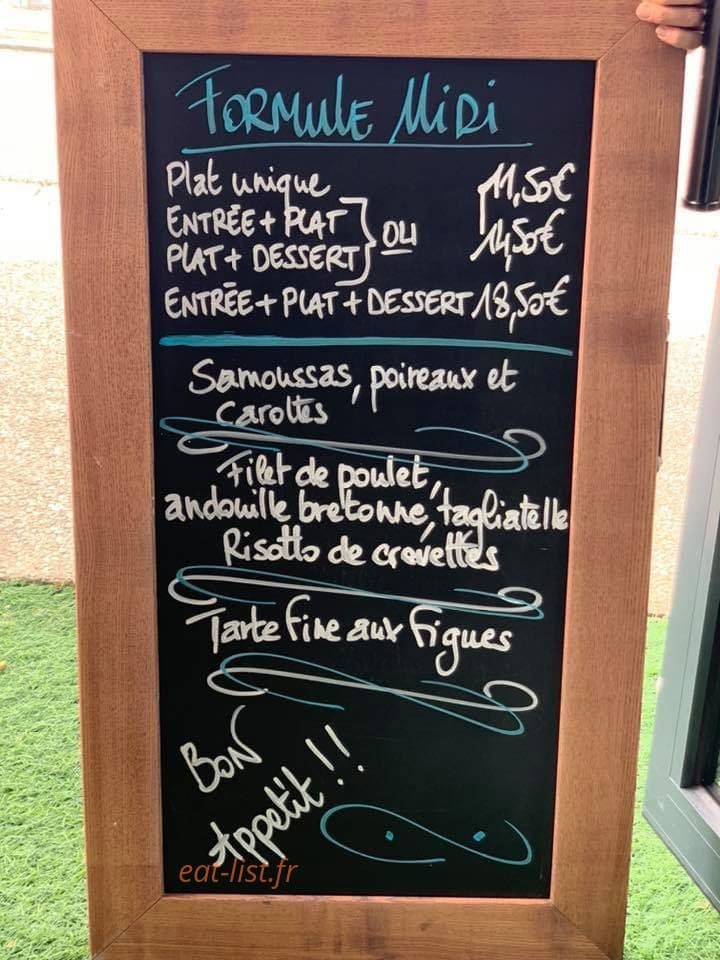 FORMULE MIDI
Plat unique 11,50€
ENTRÉE + PLAT
PLAT + DESSERT } OU 14,50€
ENTRÉE + PLAT + DESSERT 18,50€
Samoussas, poireaux et
carottes
Filet de poulet,
andouille bretonne, tagliatelle
Risotto de crevettes
Tarte fine aux figues
BON
Appétit !!
eat-list.fr